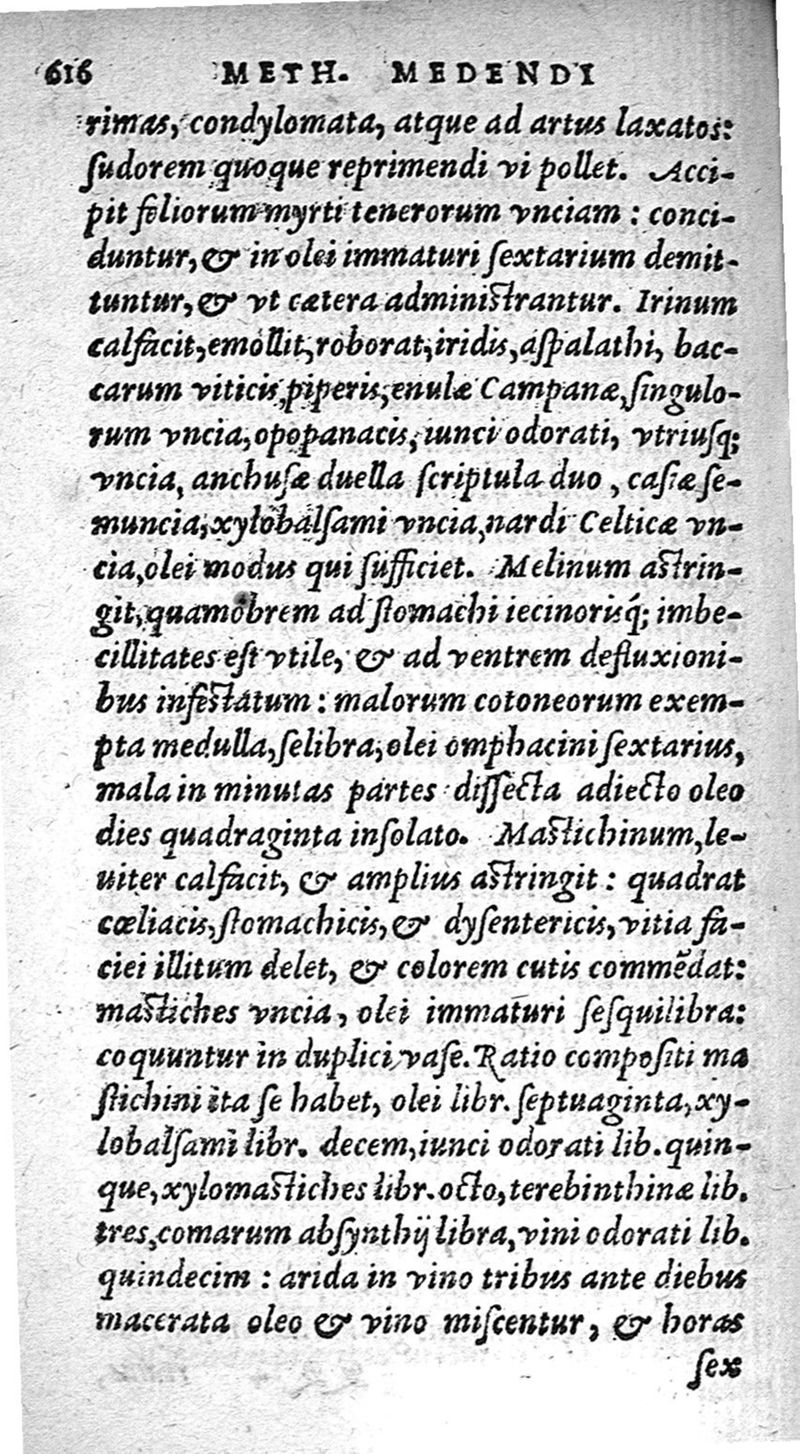 616 METH. MEDENDI
rimas, condylomata, atque ad artus laxatos:
ſudorem quoque reprimendi vi pollet. Acci-
pit foliorum myrti tenerorum vnciam : conci-
duntur, & in olei immaturi ſextarium demit-
tuntur, & vt cætera adminiſtrantur. Irinum
calfacit, emollit, roborat, iridis, aſpalathi, bac-
carum viticis, piperis, enulæ Campanæ, ſingulo-
rum vncia, opopanacis, iunci odorati, vtriuſq;
vncia, anchuſæ duella ſcriptula duo, caſiæ ſe-
muncia, xylobalſami vncia, nardi Celticæ vn-
cia, olei modus qui ſufficiet. Melinum aſtrin-
git, quamobrem ad ſtomachi iecinorisq́; imbe-
cillitates eſt vtile, & ad ventrem defluxioni-
bus infeſtatum : malorum cotoneorum exem-
pta medulla, ſelibra, olei omphacini ſextarius,
mala in minutas partes diſſecta adiecto oleo
dies quadraginta inſolato. Maſtichinum, le-
uiter calfacit, & amplius aſtringit : quadrat
cœliacis, ſtomachicis, & dyſentericis, vitia fa-
ciei illitum delet, & colorem cutis commẽdat:
maſtiches vncia, olei immaturi ſeſquilibra:
coquuntur in duplici vaſe. Ratio compoſiti ma
ſtichini ita ſe habet, olei libr. ſeptuaginta, xy-
lobalſami libr. decem, iunci odorati lib. quin-
que, xylomaſtiches libr. octo, terebinthinæ lib.
tres, comarum abſynthij libra, vini odorati lib.
quindecim : arida in vino tribus ante diebus
macerata oleo & vino miſcentur, & horas
ſex